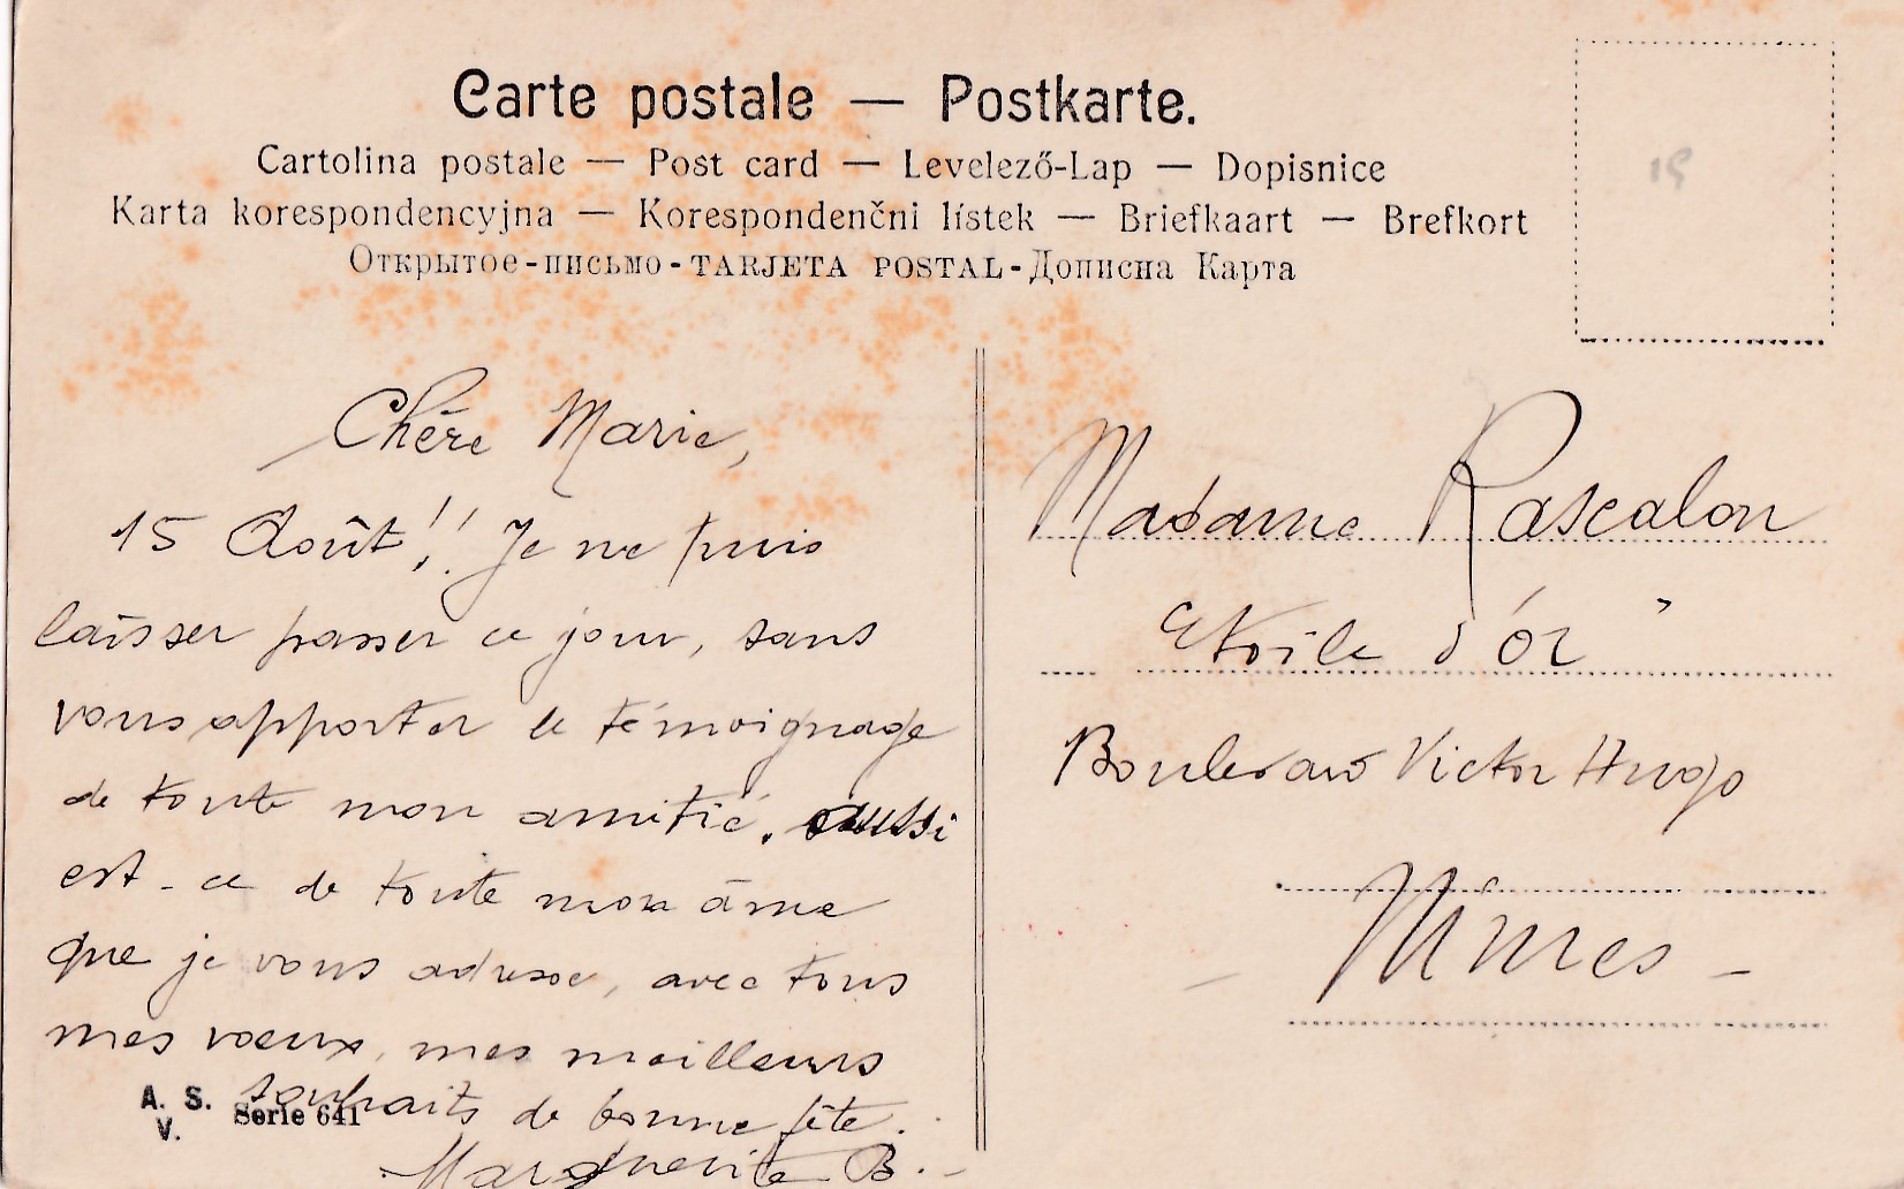 Carte postale — Postkarte.
Cartolina postale — Post card — Levelező-Lap — Dopisnice
Karta korespondencyjna — Korespondenčni lístek — Briefkaart — Brefkort
Открытое-письмо-TARJETA POSTAL-Дописна Карта
15
Chère Marie,
15 Août!! Je ne puis
laisser passer ce jour, sans
vous apporter le témoignage
de toute mon amitié. aussi
est-ce de toute mon âme
que je vous adresse, avec tous
mes voeux, mes meilleurs
souhaits de bonne fête.
Marguerite B.
A. S.
V.
Serie 641
Madame Rascalon
Etoile d'Or
Boulevard Victor Hugo
Nîmes